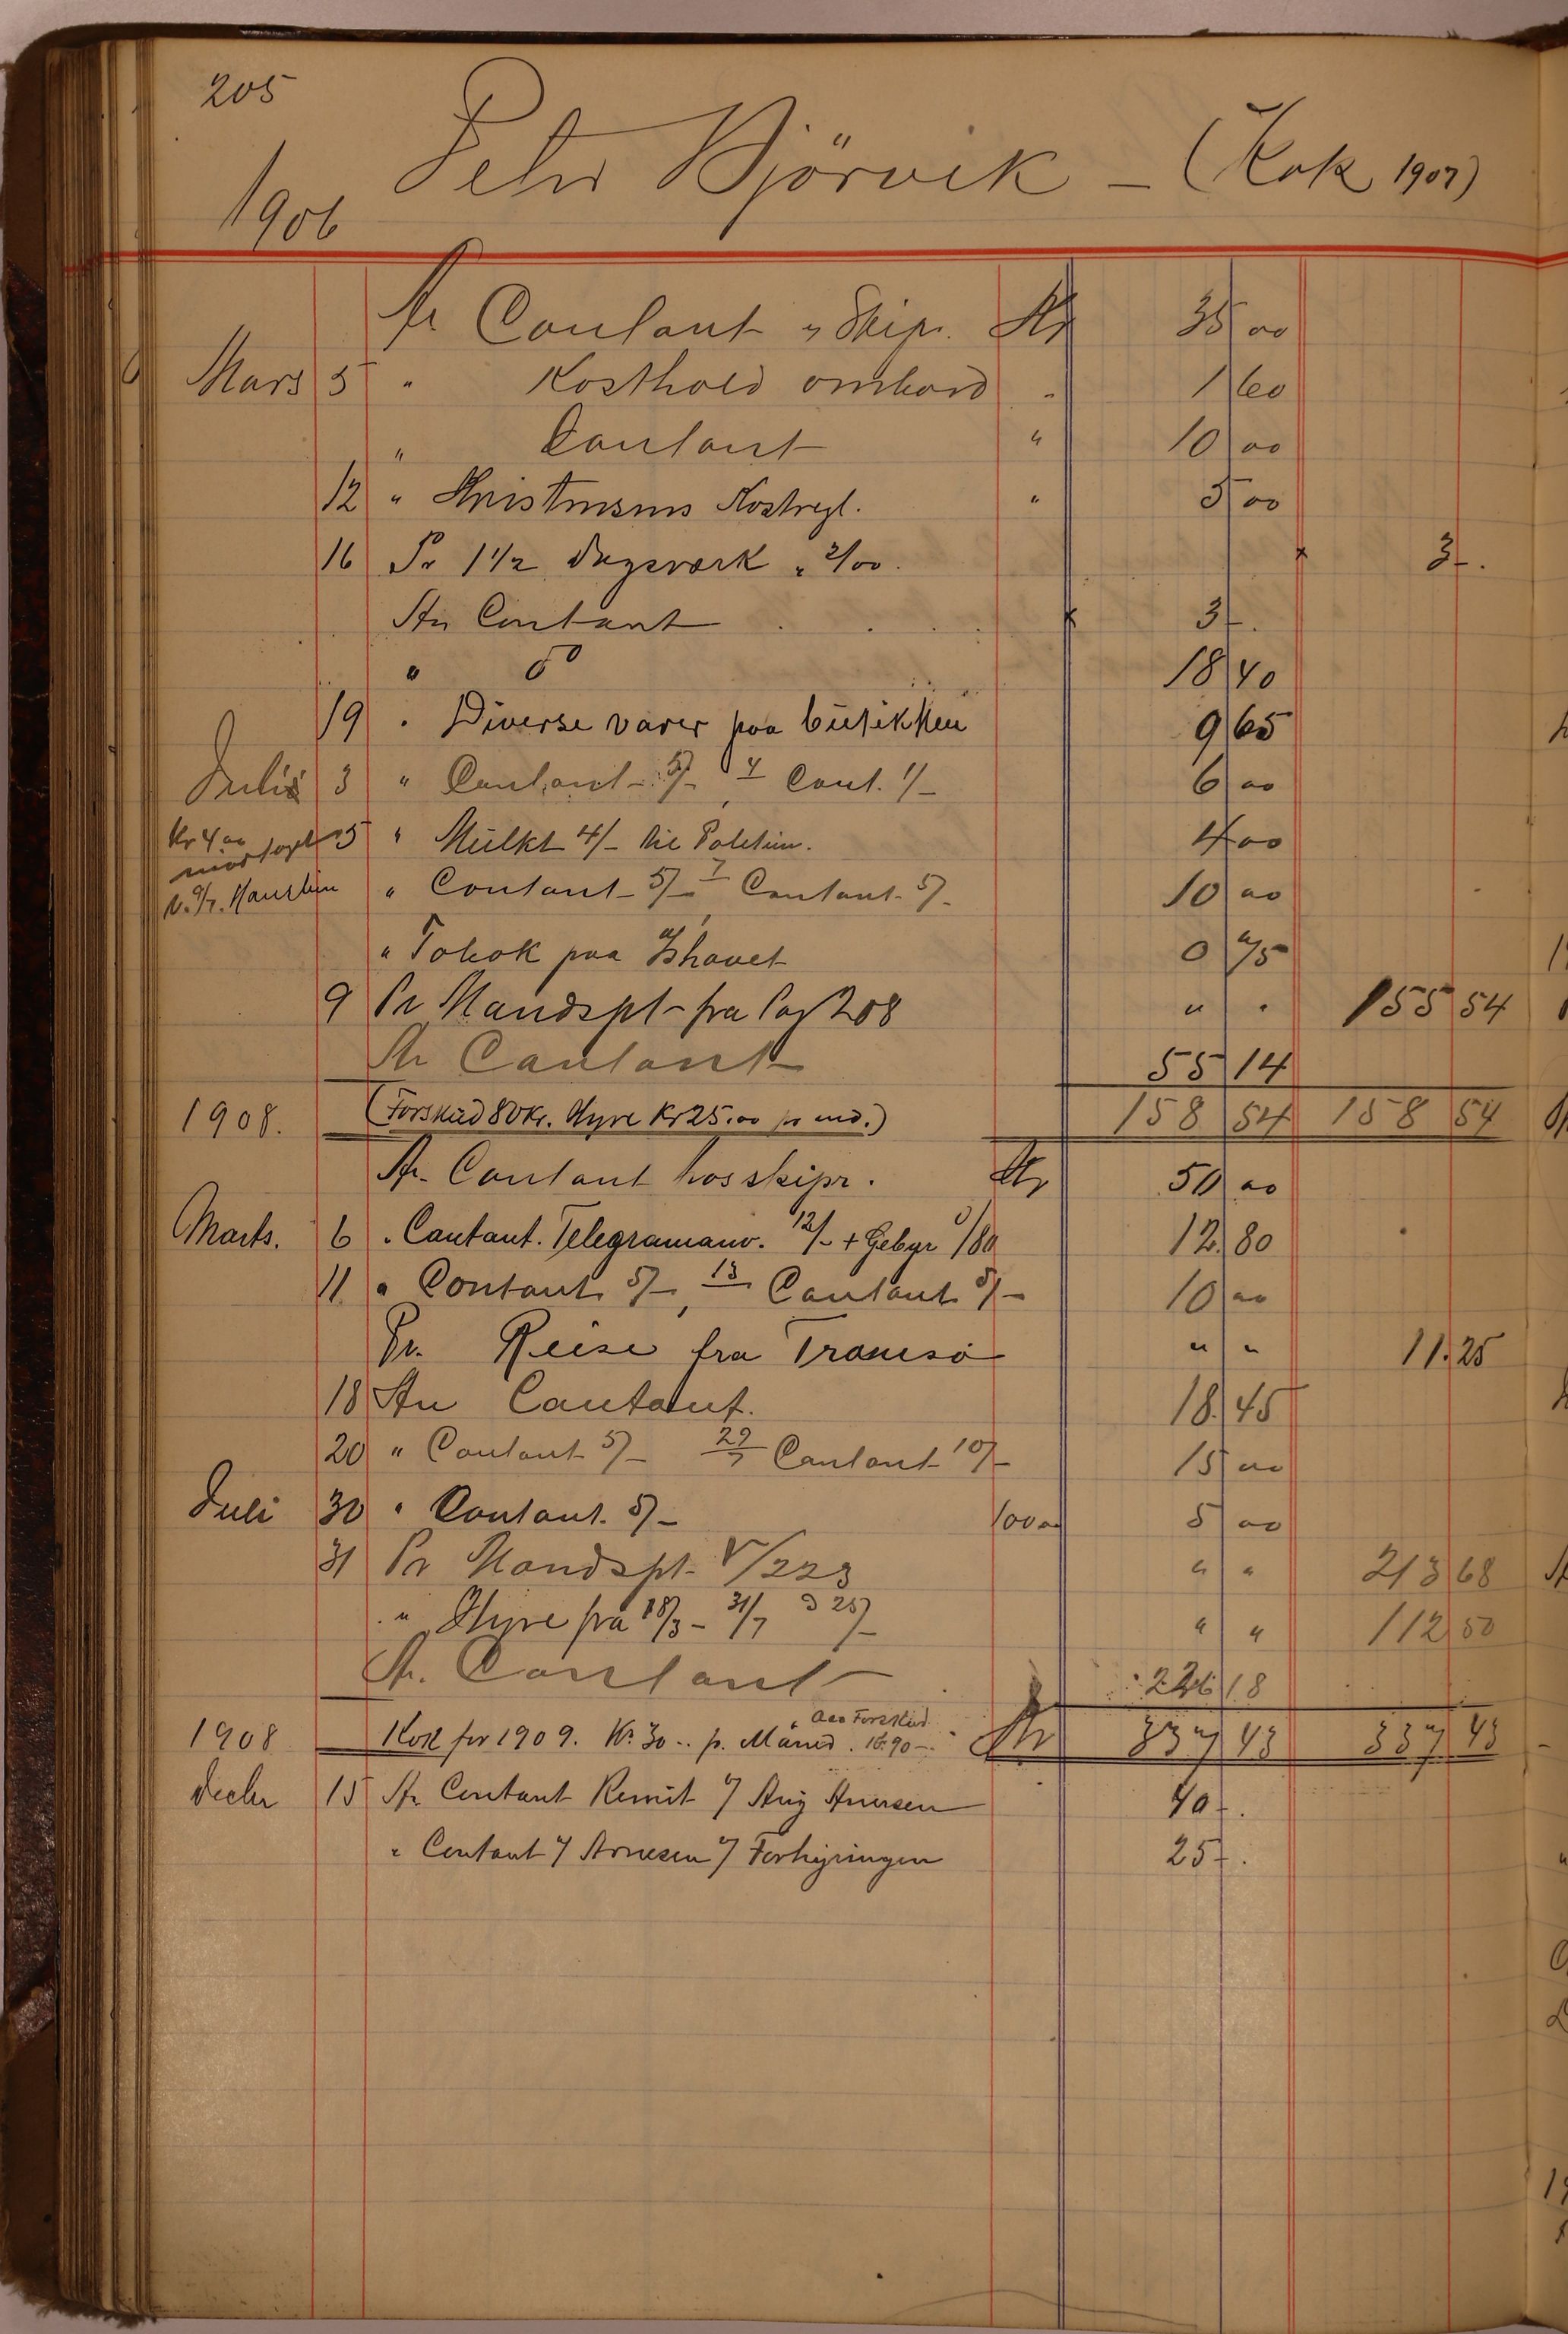 205
Peter Björvik – (Kok 1907)
1906
An Contant " Skipr. Kr 35 00
Mars 5 " Kosthold ombord " 1 60
" Contant " 10 00
12 " Kostregl. " 5 00
16 Pr 1 1/2 Dagsverk " 2/00. 3 –.
An Contant 3 –.
" do 18 40
19 " Diverse varer paa butikken 9 65
Juli 3 " Contant 5/– 4 Cont. 1/– 6 00
5 " Mulkt 4/– til Politiet. 4 00
Kr 4 00
" Contant 5/– 7 Contant 5/– 10 00
" Tobak paa Ishavet 0 75
9 Pr Mandspt fra Pag 208 " " 155 54
An Contant 55 14
1908. (Forskud 80 Kr. Hyre Kr 25.00 pr md.) 158 54 158 54
An Contant hos skipr. Kr 50 00
Marts. 6 " Contant. Telegramanv. 12/– + Gebyr 0/80 12. 80
11 " Contant 5/–, 13 Contant 5/– 10 00
Pr. Reise fra Tromsø " " 11.25
18 An Contant. 18. 45
20 " Contant 5/– 29/7 Contant 10/– 15 00
Juli 30 " Contant 5/– 100 00 5 00
31 Pr Mandspt V/223 " " 213 68
" Hyre fra 18/3 – 31/7 á 25/– " " 112 50
An. Contant 226 18
1908 Kok for 1909. Kr. 30.. p. Måned. Kr. 90 –. Forskud Kr 337 43 337 43
Decbr 15 An Contant Remit Aug Arnesen 40 –.
" Contant Arnesen Forhyringen 25 –.